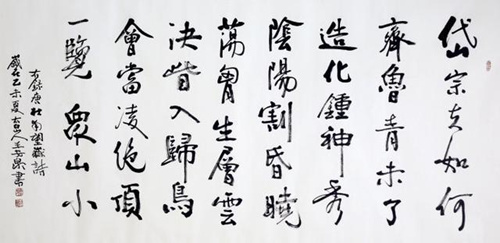 岱宗夫如何
齊魯青未了
造化鍾神秀
陰陽割昏曉
蕩胷生層雲
決眥入歸鳥
會當凌絶頂
一覽眾山小
右錄唐杜甫望嶽詩
歲在乙未夏 書